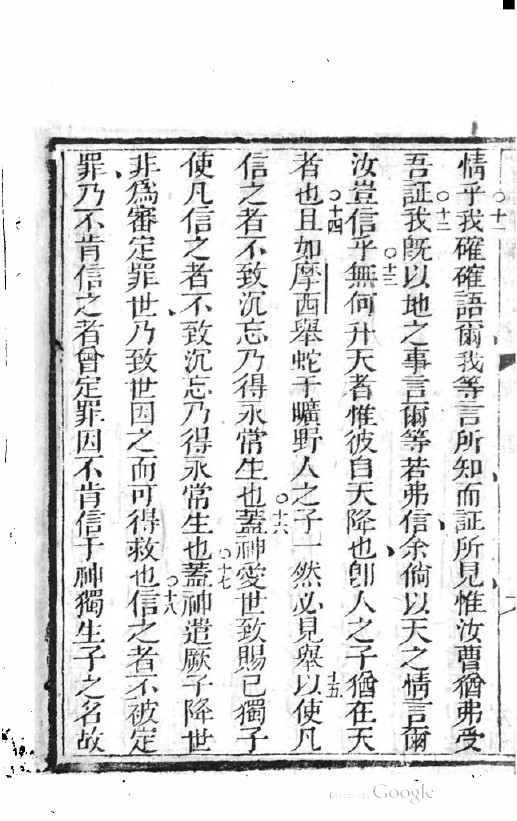 情乎〇十一我確確語爾我等言所知而証所見惟汝曹猶弗受
吾証〇十二我旣以地之事言爾等若弗信余倘以天之情言爾
汝豈信乎〇十三無何升天者惟彼自天降也卽人之子猶在天
者也〇十四且如摩西舉蛇于曠野人之子一然必見舉〇十五以使凡
信之者不致沉忘乃得永常生也〇十六蓋神愛世致賜己獨子
使凡信之者不致沉忘乃得永常生也〇十七蓋神遣厥子降世
非爲審定罪世乃致世因之而可得救也〇十八信之者不被定
罪乃不肯信之者曾定罪因不肯信于神獨生子之名故
Digitized by Google